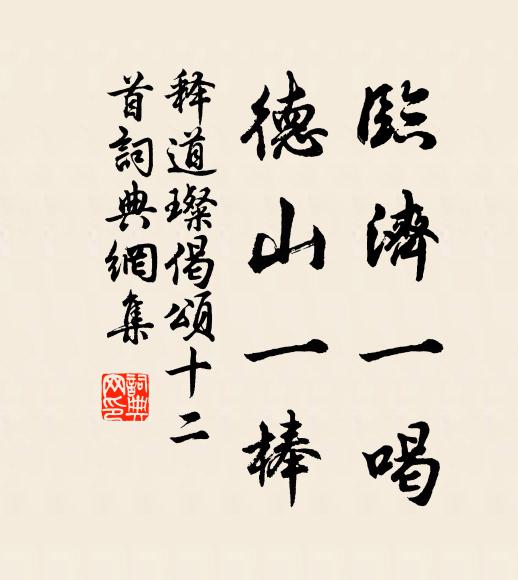 臨濟一喝
德山一棒
释道璨偈頌十二
首詞典網集
詞典
网印